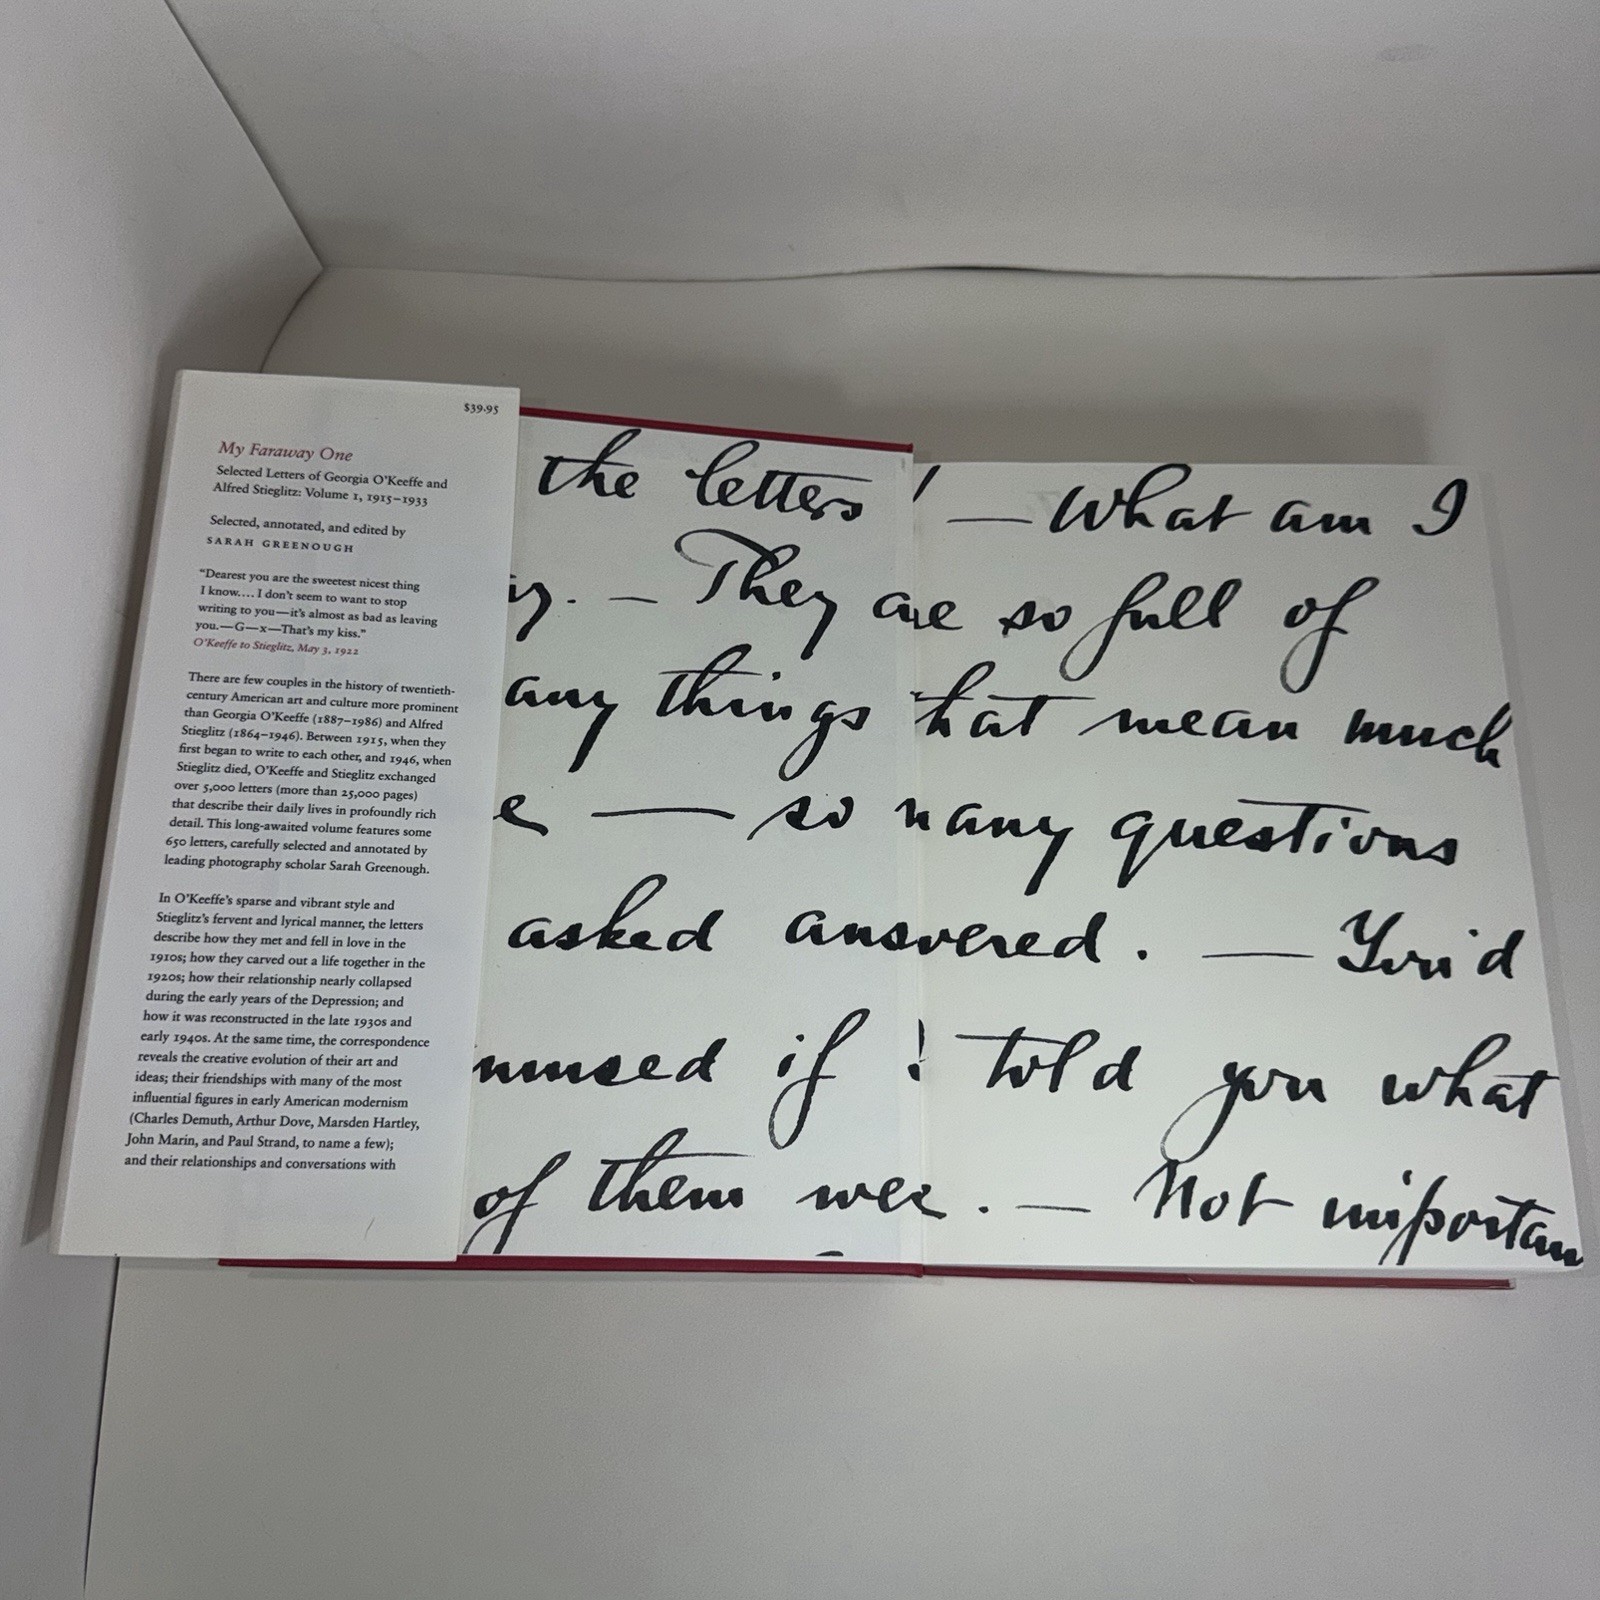 $39.95
My Faraway One
Selected Letters of Georgia O'Keeffe and
Alfred Stieglitz: Volume 1, 1915–1933
Selected, annotated, and edited by
SARAH GREENOUGH
"Dearest you are the sweetest nicest thing
I know.... I don't seem to want to stop
writing to you—it's almost as bad as leaving
you.—G—x—That's my kiss."
O'Keeffe to Stieglitz, May 3, 1922
There are few couples in the history of twentieth-
century American art and culture more prominent
than Georgia O'Keeffe (1887–1986) and Alfred
Stieglitz (1864–1946). Between 1915, when they
first began to write to each other, and 1946, when
Stieglitz died, O'Keeffe and Stieglitz exchanged
over 5,000 letters (more than 25,000 pages)
that describe their daily lives in profoundly rich
detail. This long-awaited volume features some
650 letters, carefully selected and annotated by
leading photography scholar Sarah Greenough.
In O'Keeffe's sparse and vibrant style and
Stieglitz's fervent and lyrical manner, the letters
describe how they met and fell in love in the
1910s; how they carved out a life together in the
1920s; how their relationship nearly collapsed
during the early years of the Depression; and
how it was reconstructed in the late 1930s and
early 1940s. At the same time, the correspondence
reveals the creative evolution of their art and
ideas; their friendships with many of the most
influential figures in early American modernism
(Charles Demuth, Arthur Dove, Marsden Hartley,
John Marin, and Paul Strand, to name a few);
and their relationships and conversations with
the letters! — What am I
. — They are so full of
any things that mean much
e — so many questions
asked answered. — You'd
mused if I told you what
of them were. — Not importan